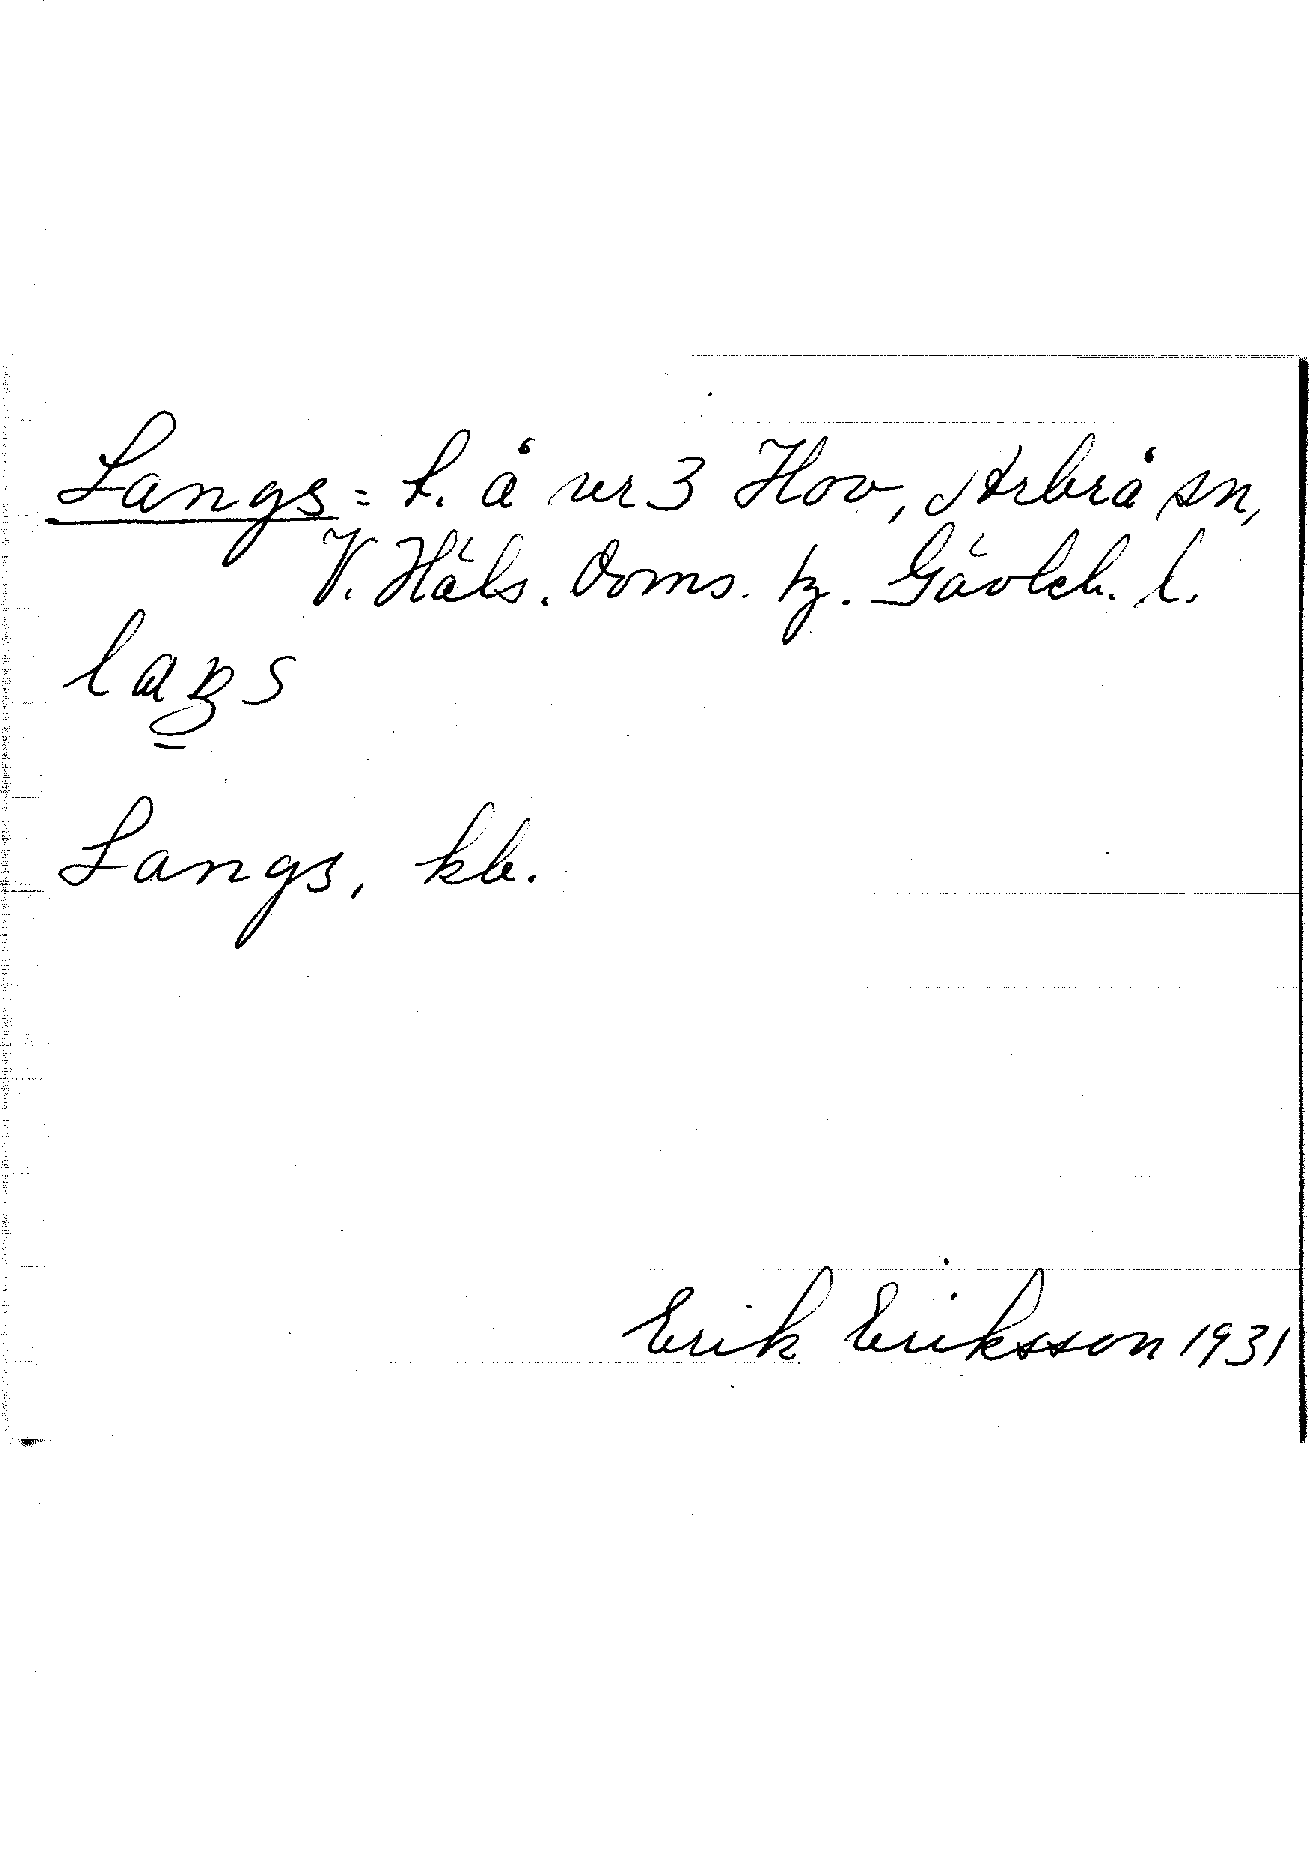 Langs = h. å nr 3 Hov, Arbrå sn,
V. Häls. doms. tg. Gävleb. l.
Langs, kb.
Erik Eriksson 1931